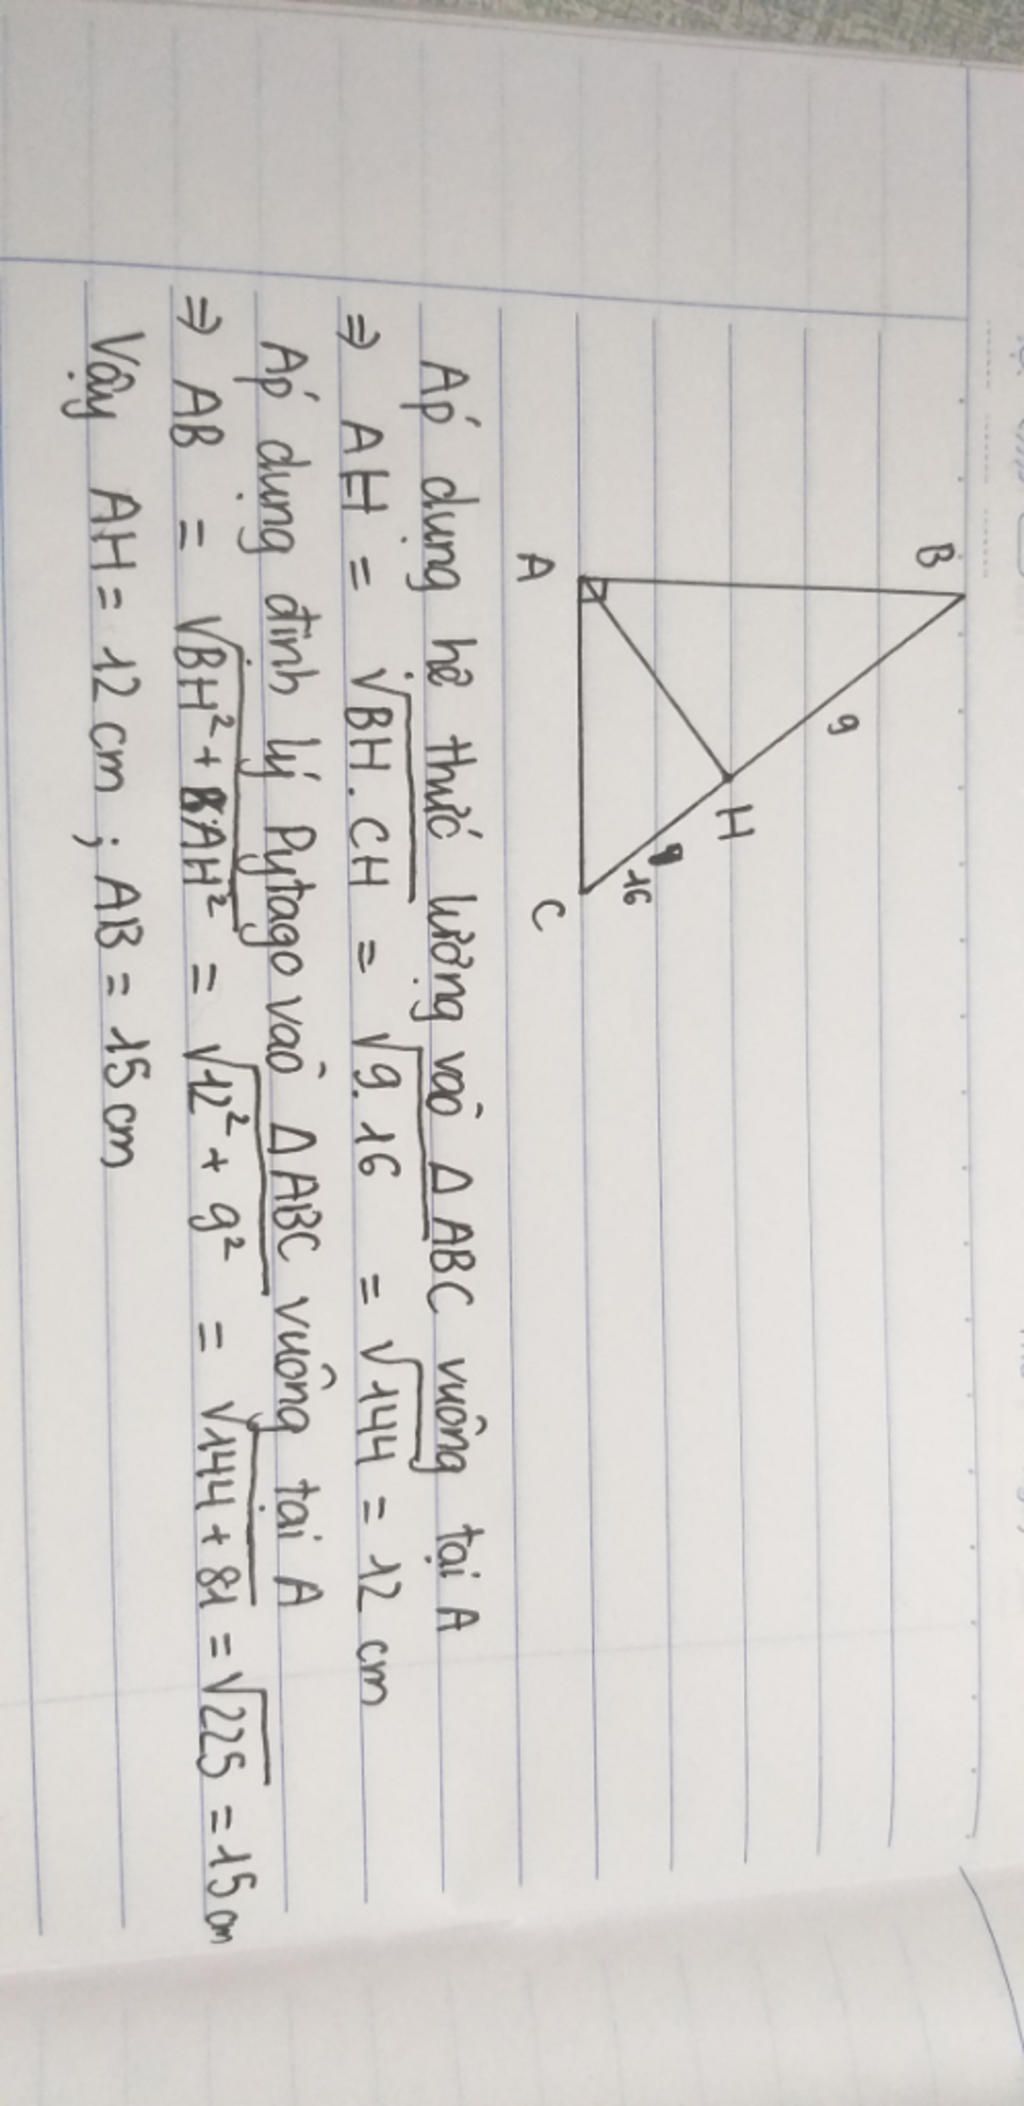 B
9
H
16
A
C
Áp dụng hệ thức lượng vào Δ ABC vuông tại A
⇒ AH = √BH.CH = √9.16 = √144 = 12 cm
Áp dụng định lý Pytago vào Δ ABC vuông tại A
⇒ AB = √BH² + AH² = √12² + 9² = √144 + 81 = √225 = 15 cm
Vậy AH = 12 cm ; AB = 15 cm